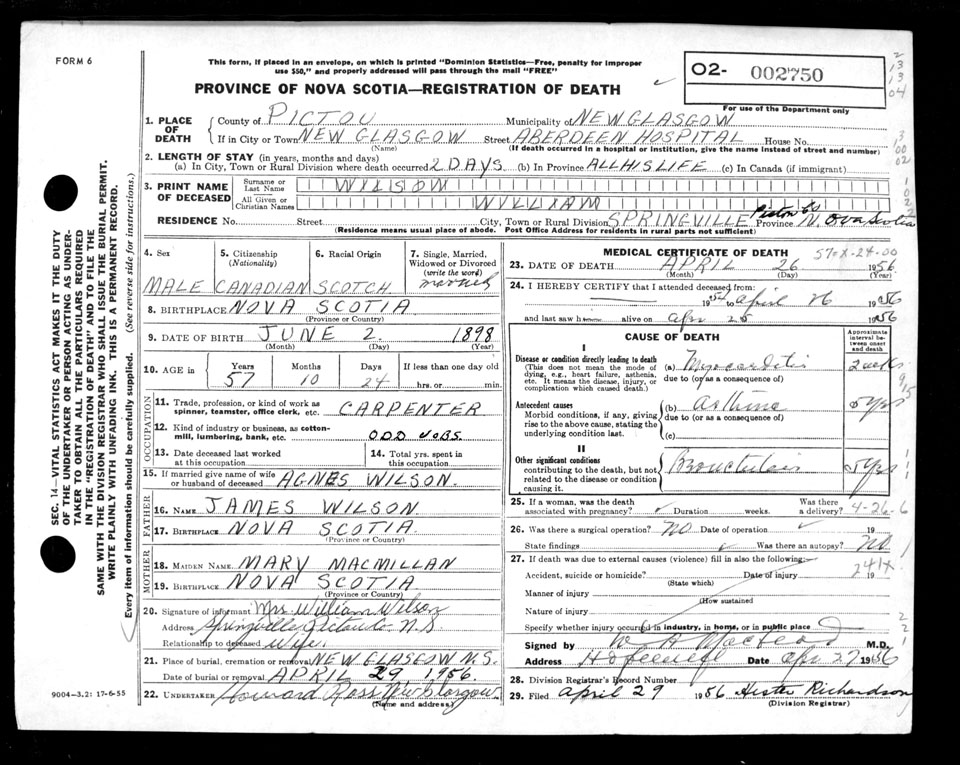 FORM 6
This form, if placed in an envelope, on which is printed "Dominion Statistics—Free, penalty for improper
use $50," and properly addressed will pass through the mail "FREE"
O2- 002750
For use of the Department only
PROVINCE OF NOVA SCOTIA—REGISTRATION OF DEATH
1. PLACE OF DEATH
County of PICTOU Municipality of NEW GLASGOW
If in City or Town NEW GLASGOW Street ABERDEEN HOSPITAL House No.
(Name) (If death occurred in a hospital or institution, give the name instead of street and number)
2. LENGTH OF STAY (in years, months and days)
(a) In City, Town or Rural Division where death occurred 2 DAYS (b) In Province ALL HIS LIFE (c) In Canada (if immigrant)
3. PRINT NAME OF DECEASED
Surname or Last Name WILSON
All Given or Christian Names WILLIAM
RESIDENCE No. Street City, Town or Rural Division SPRINGVILLE Pictou Co Province Nova Scotia
(Residence means usual place of abode. Post Office Address for residents in rural parts not sufficient)
4. Sex MALE
5. Citizenship (Nationality) CANADIAN
6. Racial Origin SCOTCH
7. Single, Married, Widowed or Divorced (write the word) married
8. BIRTHPLACE NOVA SCOTIA
(Province or Country)
9. DATE OF BIRTH JUNE 2 1898
(Month) (Day) (Year)
10. AGE in Years 57 Months 10 Days 24 If less than one day old hrs. or min.
OCCUPATION
11. Trade, profession, or kind of work as spinner, teamster, office clerk, etc. CARPENTER
12. Kind of industry or business, as cotton-mill, lumbering, bank, etc. ODD JOBS.
13. Date deceased last worked at this occupation
14. Total yrs. spent in this occupation
15. If married give name of wife or husband of deceased AGNES WILSON.
FATHER
16. NAME JAMES WILSON
17. BIRTHPLACE NOVA SCOTIA
(Province or Country)
MOTHER
18. MAIDEN NAME MARY MACMILLAN
19. BIRTHPLACE NOVA SCOTIA
(Province or Country)
20. Signature of informant Mrs. William Wilson
Address Springville Pictou Co N.S
Relationship to deceased Wife.
21. Place of burial, cremation or removal NEW GLASGOW N.S.
Date of burial or removal APRIL 29, 1956.
22. UNDERTAKER Howard Ross New Glasgow
(Name and address)
MEDICAL CERTIFICATE OF DEATH 57-X-24-00
23. DATE OF DEATH APRIL 26 1956
(Month) (Day)
24. I HEREBY CERTIFY that I attended deceased from:
to april 26 1956
and last saw h alive on apr 25 1956
CAUSE OF DEATH
Approximate interval between onset and death
I
Disease or condition directly leading to death
(This does not mean the mode of dying, e.g., heart failure, asthenia, etc. It means the disease, injury, or complication which caused death.)
(a) Myocarditis 2 weeks
due to (or as a consequence of)
Antecedent causes
Morbid conditions, if any, giving rise to the above cause, stating the underlying condition last.
(b) asthma 5 yrs
due to (or as a consequence of)
(c)
II
Other significant conditions contributing to the death, but not related to the disease or condition causing it.
5 yrs
25. If a woman, was the death associated with pregnancy? Duration weeks. Was there a delivery? 4-26-6
26. Was there a surgical operation? NO Date of operation 19
State findings Was there an autopsy? NO
27. If death was due to external causes (violence) fill in also the following: 241X
Accident, suicide or homicide? Date of injury 19
(State which)
Manner of injury
(How sustained
Nature of injury
Specify whether injury occurred in industry, in home, or in public place
Signed by W. A. MacLeod M.D.
Address Hopewell Date Apr 27 1956
28. Division Registrar's Record Number
29. Filed April 29 1956 Hester Richardson
(Division Registrar)
SEC. 14—VITAL STATISTICS ACT MAKES IT THE DUTY
OF THE UNDERTAKER OR PERSON ACTING AS UNDER-
TAKER TO OBTAIN ALL THE PARTICULARS REQUIRED
IN THE "REGISTRATION OF DEATH" AND TO FILE THE
SAME WITH THE DIVISION REGISTRAR WHO SHALL ISSUE THE BURIAL PERMIT.
WRITE PLAINLY WITH UNFADING INK. THIS IS A PERMANENT RECORD.
Every item of information should be carefully supplied. (See reverse side for instructions.)
9004-3.2: 17-6-55